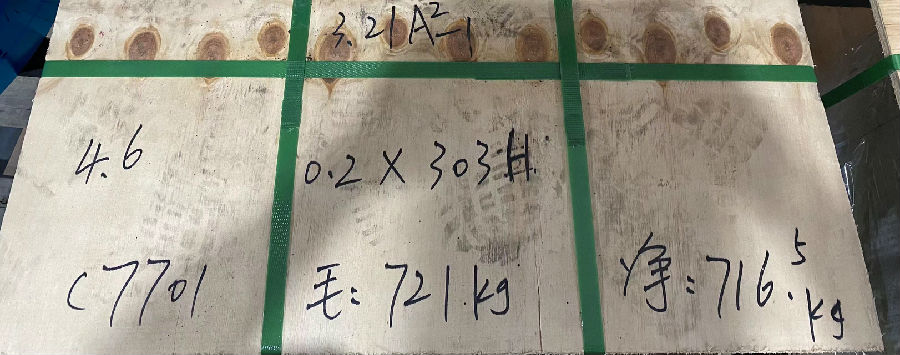 3.21A²-1
4.6 0.2×303H.
C7701 毛:721kg 净:716.5kg